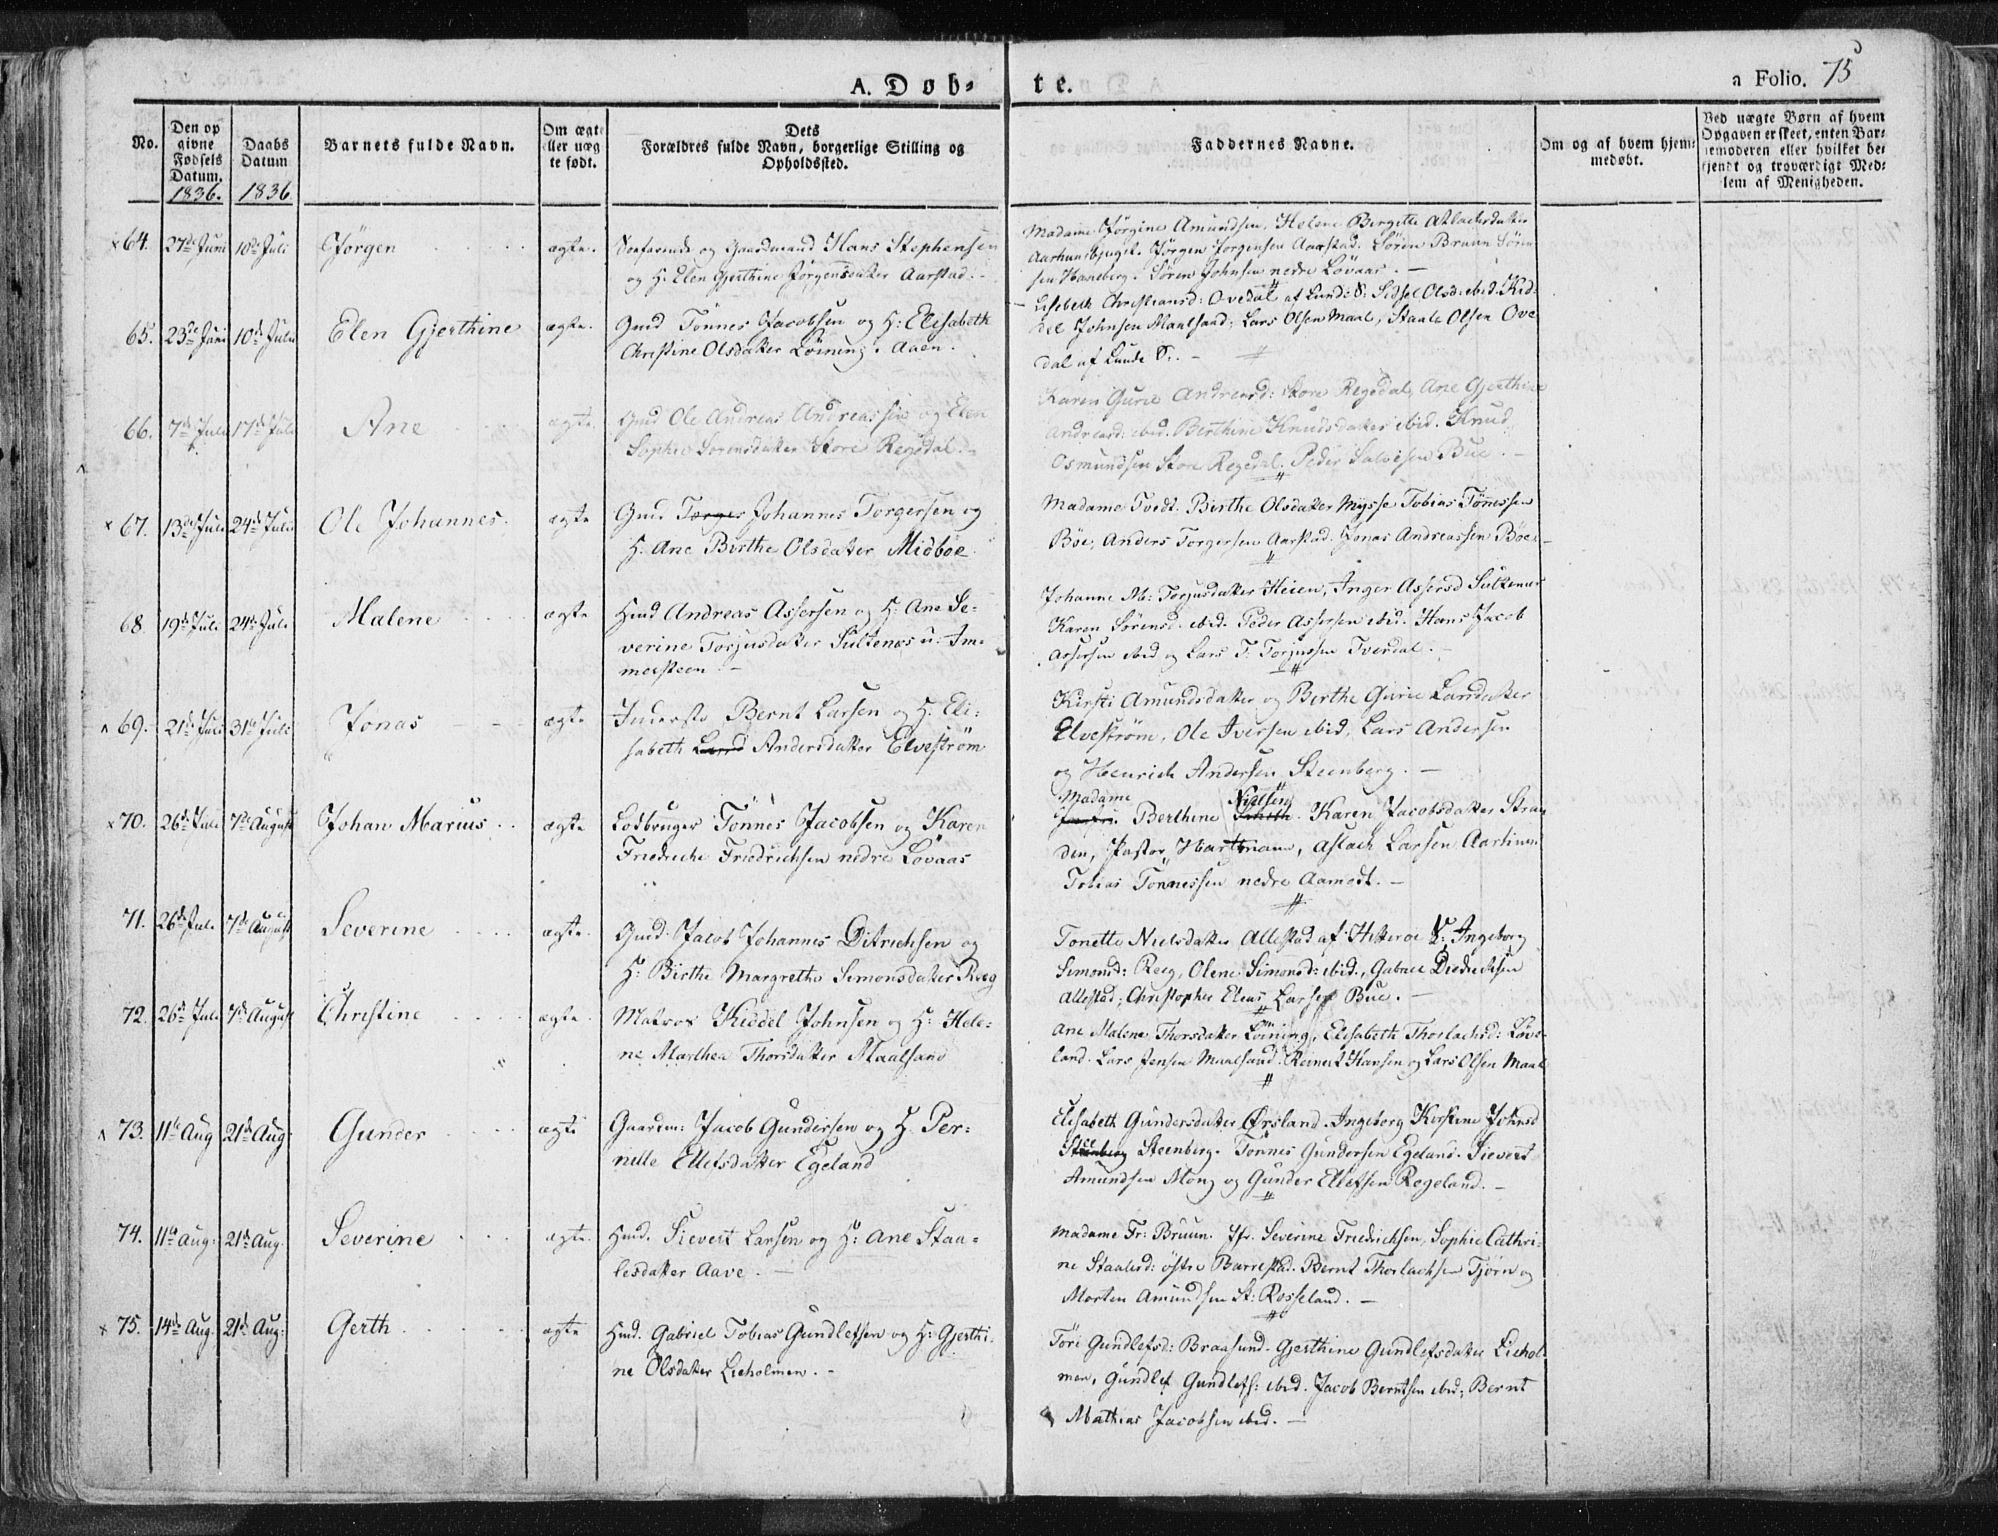 A. Døb-
te.
a Folio. 75
No.
Den op
givne
Fødsels
Datum.
1836.
Daabs
Datum
1836
Barnets fulde Navn.
Om ægte
eller uæg
te født.
Dets
Forældres fulde Navn, borgerlige Stilling og
Opholdssted.
Faddernes Navne.
Om og af hvem hjem-
medøbt.
Ved uægte Børn af hvem
Opgaven er skeet, enten Bar-
nemoderen eller hvilket be-
kjendt og troværdigt Med-
lem af Menigheden.
× 64. 27de Juni 10de Juli Jørgen ægte. og Gaardmand Hans Stephensen
og H: Elen Gjerthine Jørgensdatter Aarstad.
Madame Jørgine Amundsen, Helene Birgitte Atlachsdatter
Jørgen Jørgensen Aarstad. Søren Bruun Søren
sen Haneberg. Søren Johnsen nedre Lovaas. —
65. 23de Juni 10de Juli Elen Gjerthine ægte. Gmd Tönnes Jacobsen og H: Elisabeth
Christine Olsdatter Löining. Aaen.
Lisebeth Christiansd: Ovedal af Lund: S: Sidsel Olsd: ibid. Kid-
del Johnsen Maalsand, Lars Olsen Maal, Staale Olsen Ove
dal af Lunde S. —
66. 7de Juli 17de Juli Ane ægte. Gmd Ole Andreas Andreassen og Elen
Sophie Sörensdatter Store Regedal.
Karen Gurie Andreasd: Store Regedal, Ane Gjerthine
Andreasd: ibid. Berthine Knudsdatter ibid. Knud
Osmundsen Store Regedal. Peder Salvesen Bue. —
× 67. 13de Juli 24de Juli Ole Johannes. ægte Gmd Torger Johannes Torgersen og
H. Ane Birthe Olsdatter Midböe.
Madame Tvedt. Birthe Olsdatter Mysse Tobias Tönnessen
Böe, Anders Torgersen Aarstad. Jonas Andreassen Böe. —
68. 19de Juli 24de Juli Malene ægte Hmd Andreas Assersen og H: Ane Se-
verine Torjusdatter Sultenes u. Im-
mersteen —
Johanne M: Torjusdatter Heien, Inger Assersd Sultenes
Karen Sörensd. ibid. Peder Assersen ibid. Hans Jacob
Assersen ibid og Lars T: Torjussen Tverdal. —
69. 21de Juli 31te Juli Jonas ægte Inderste Bernt Larsen og H. Eli-
sabeth Andersdatter Elveström
Kirsti Amundsdatter og Birthe Gurie Larsdatter
Elveström, Ole Iversen ibid, Lars Andersen
og Henrich Andersen Steenberg. —
× 70. 26de Juli 7de August Johan Marius ægte Lodbruger Tönnes Jacobsen og Karen
Friedriche Friedrichsen nedre Lovaas
Madame Nielsen
Berthine Karen Jacobsdatter Stran
den, Pastor Hartmann, Aslach Larsen
Tobias Tönnessen nedre Aamodt. —
71. 26de Juli 7de August Severine ægte. Gmd. Jacob Johannes Ditrichsen og
H: Birthe Margrethe Simonsdatter Reeg
Tonette Nielsdatter Allestad af Hitteröe S: Ingeborg
Simonsd: Reeg, Olene Simonsd: ibid., Gabriel Diedrichsen
Allestad, Christopher Elias Larsen Bue. —
72. 26de Juli 7de August Christine ægte. Matros Kiddel Johnsen og H: Hele-
ne Marthea Thorsdatter Maalsand
Ane Malene Thorsdatter Löining, Elisabeth Thorlachsd: Löve-
land. Lars Jensen Maalsand. Reinert Hansen og Lars Olsen Maal
73. 11te Aug 21de Aug: Gunder ægte Gaardm: Jacob Gundersen og H. Per-
nille Ellefsdatter Egeland
Elisabeth Gundersdatter Ørsland. Ingeborg Kirstine Johnsd
Steenberg. Tönnes Gundersen Egeland. Sievert
Amundsen Mong og Gunder Ellefsen Regeland. —
74. 11te Aug: 21de Aug. Severine ægte. Hmd. Sievert Larsen og H: Ane Staa-
lesdatter Aave. —
Madame Fr: Bruun. Jfr. Severine Friedrichsen, Sophie Cathri-
ne Staalesd: östre Barrestad. Bernt Thorlachsen Tjörn og
Morten Amundsen St: Rosseland. —
× 75. 14de Aug. 21de Aug: Gerth ægte Hmd. Gabriel Tobias Gundlefsen og H: Gjerthi-
ne Olsdatter Lieholmen. —
Tore Gundlefsd: Braasund. Gjerthine Gundlefsdatter Liehol-
men, Gundlef Gundlefs: ibid. Jacob Berntsen ibid, Bernt
Mathias Jacobsen ibid. —